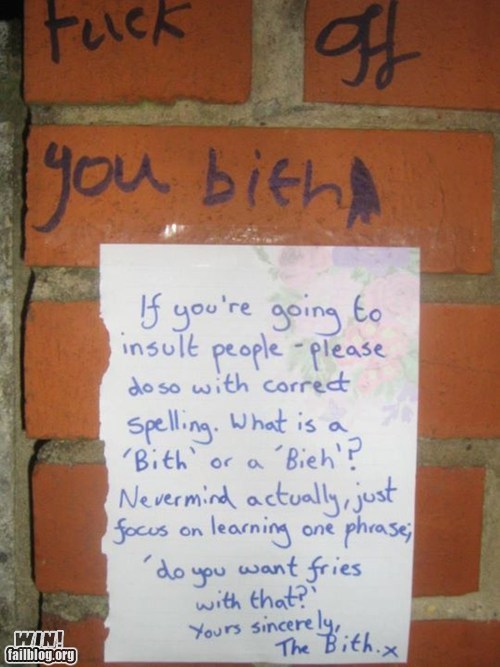 fuck off
you bith
If you're going to
insult people - please
do so with correct
spelling. What is a
'Bith' or a 'Bieh'?
Nevermind actually, just
focus on learning one phrase;
'do you want fries
with that?'
Yours sincerely,
The Bith.x
WIN!
failblog.org